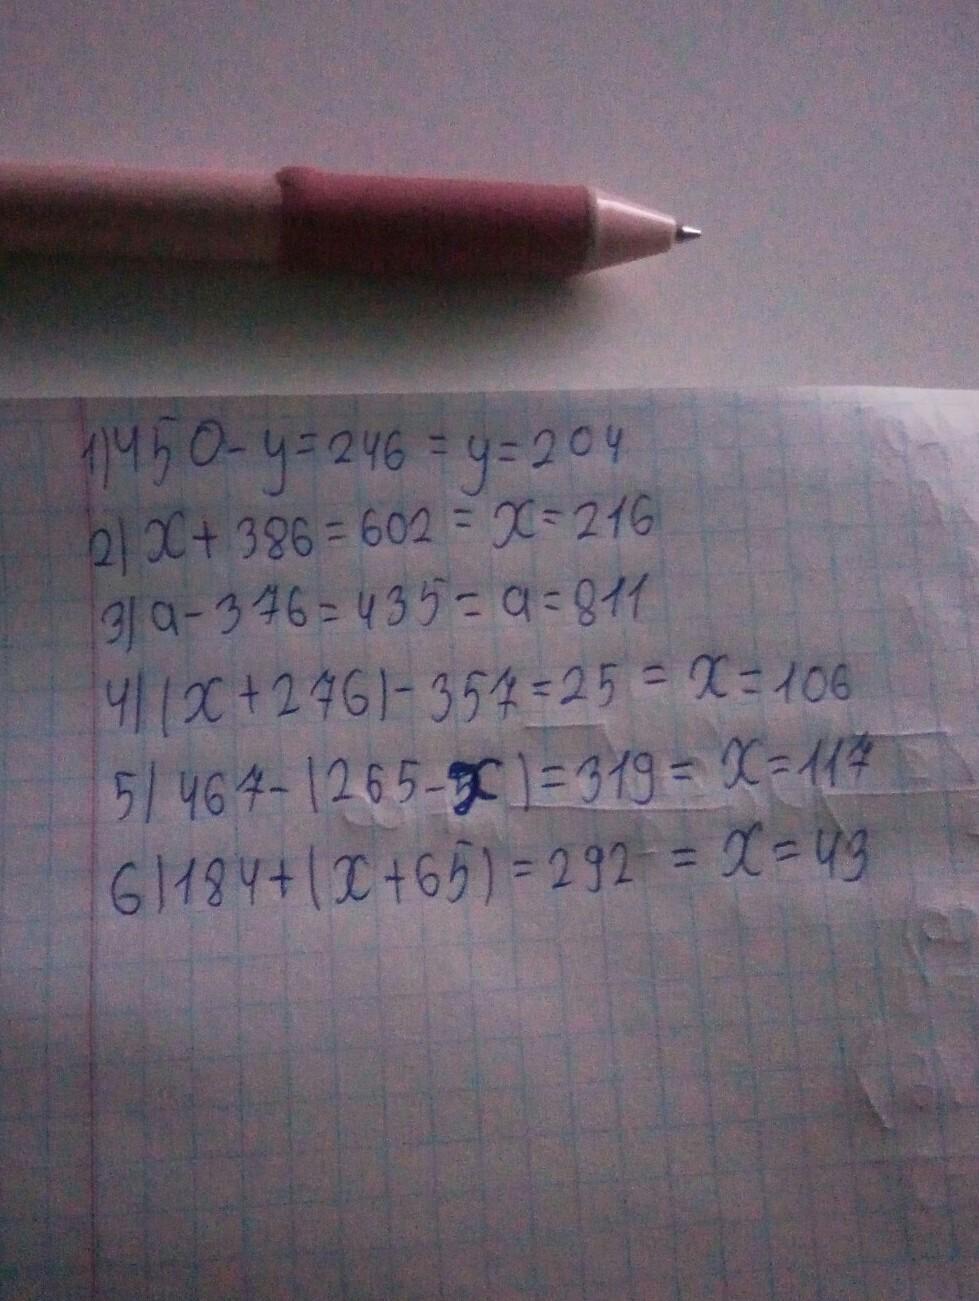 1) 450 - y = 246 = y = 204
2) x + 386 = 602 = x = 216
3) a - 376 = 435 = a = 811
4) (x + 276) - 357 = 25 = x = 106
5) 467 - (265 - x) = 319 = x = 117
6) 184 + (x + 65) = 292 = x = 43